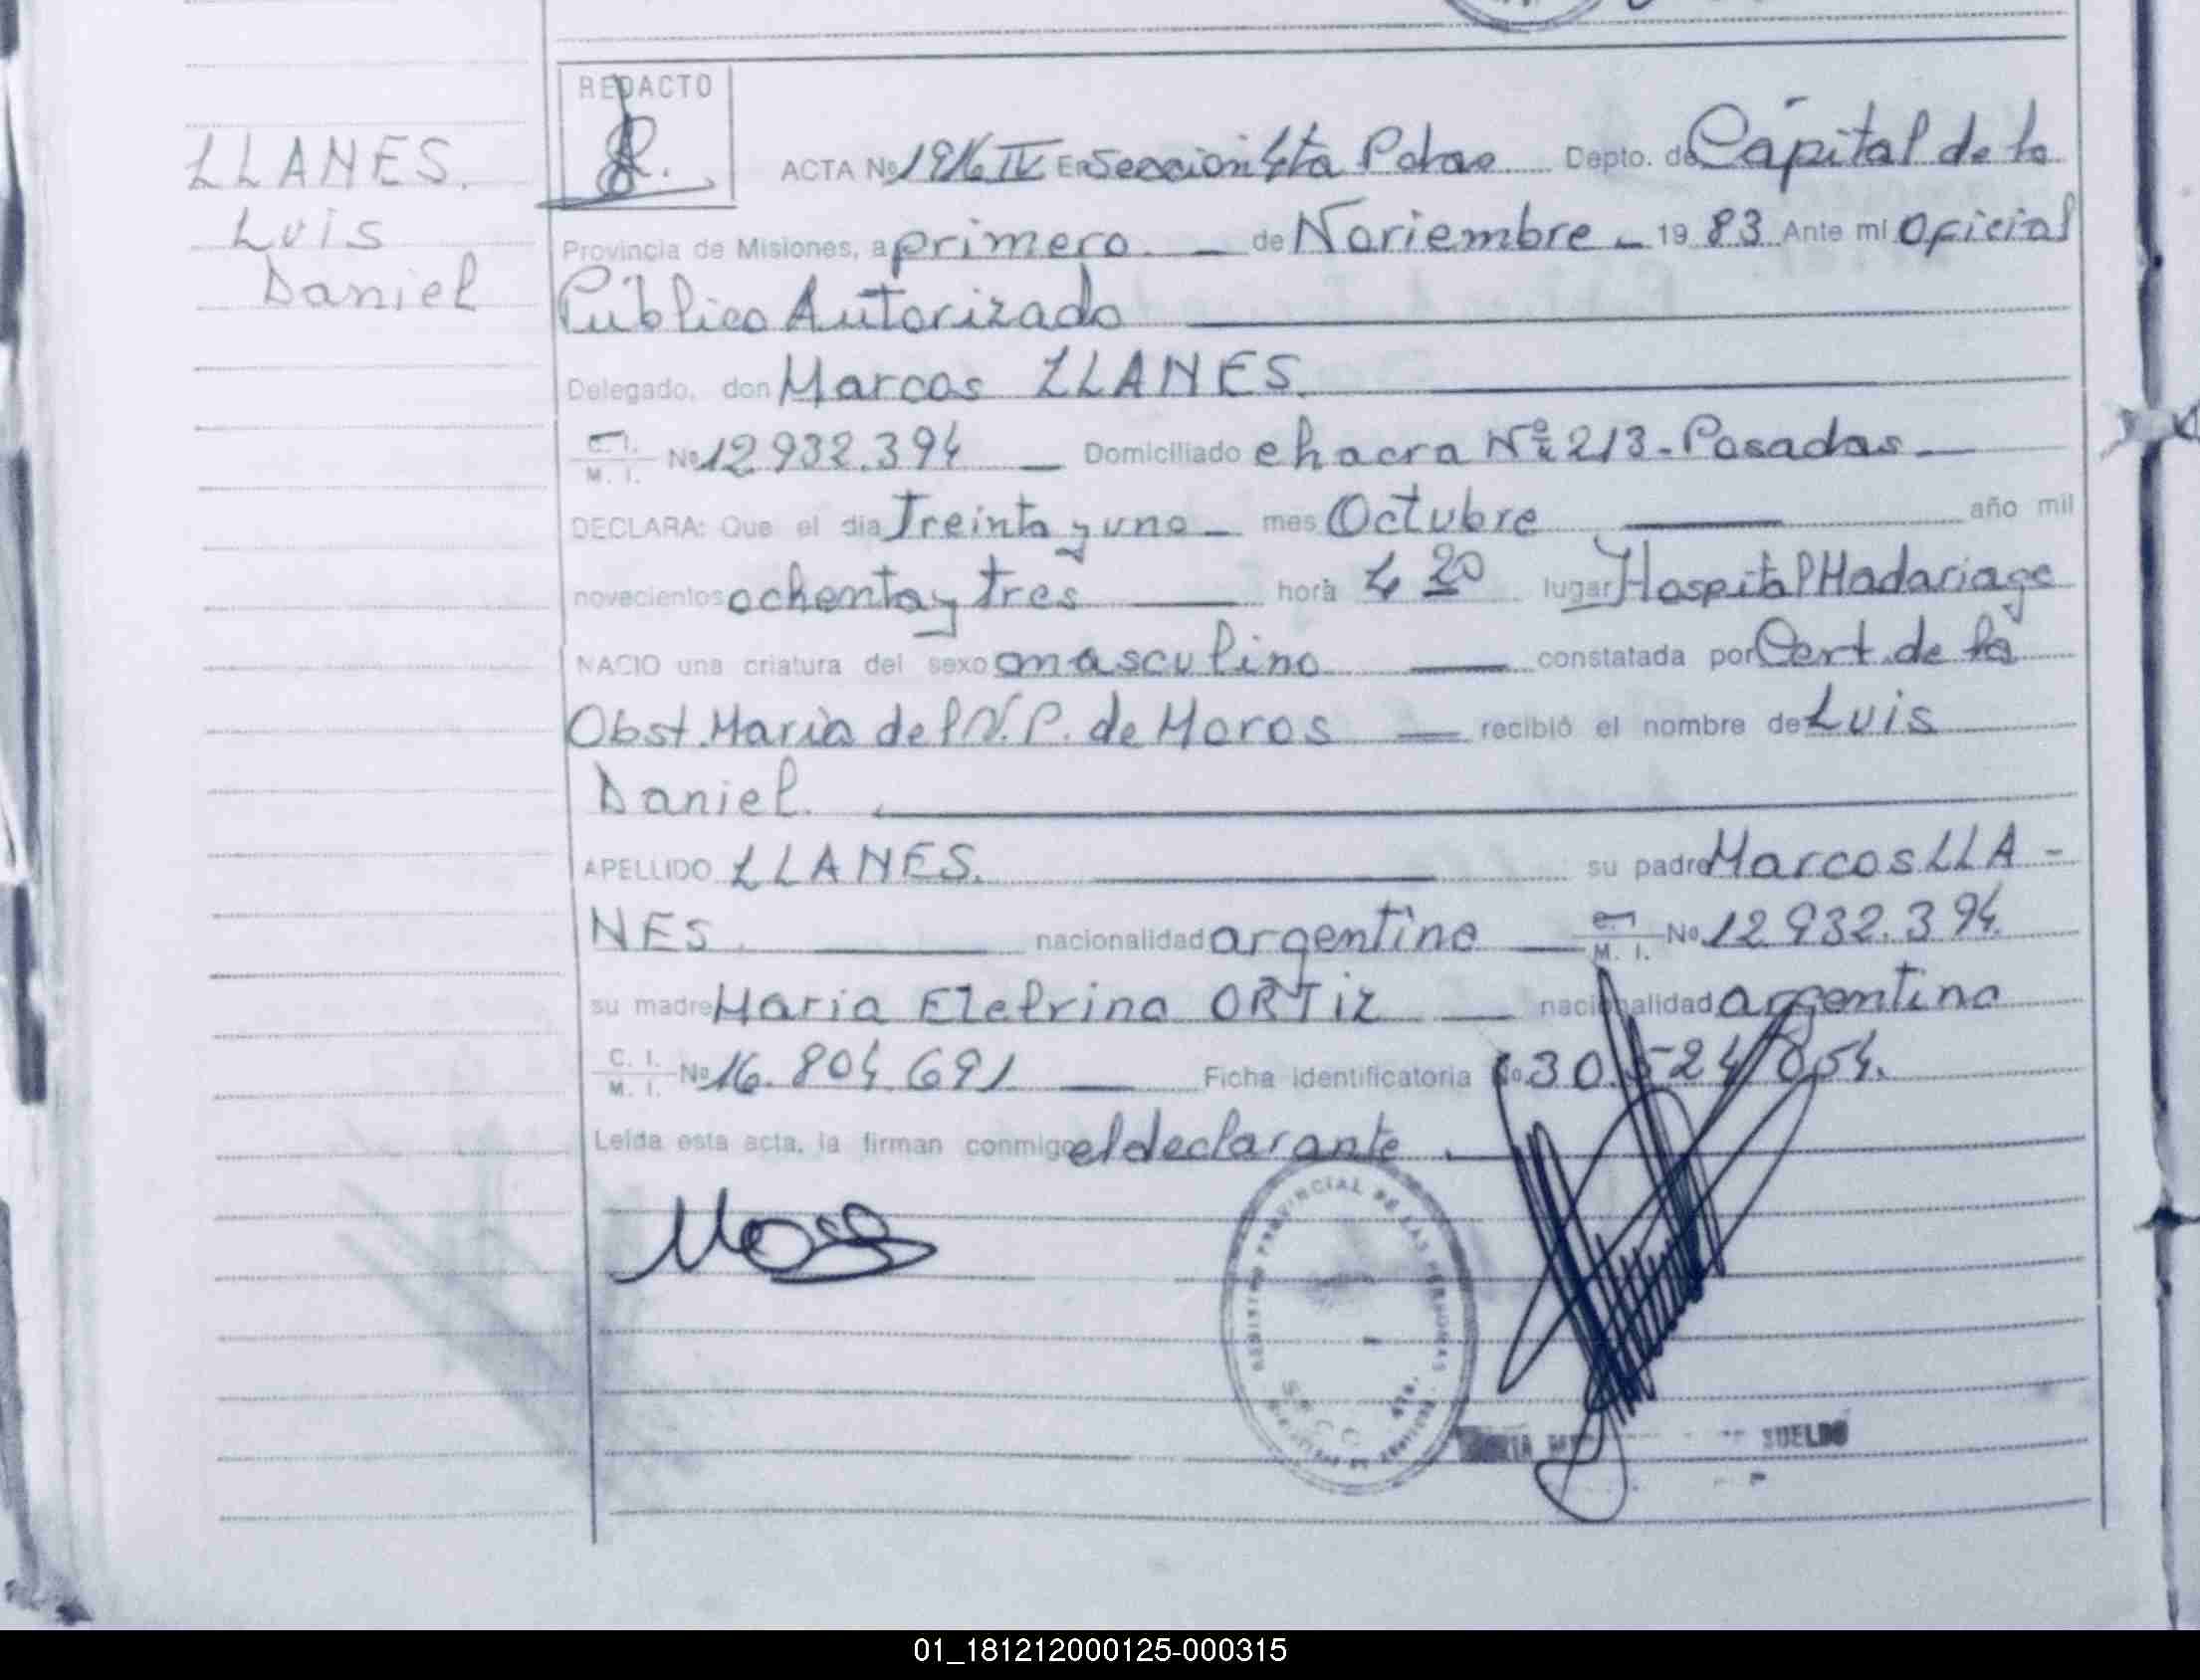 REDACTO
LLANES.
Luis
Daniel
ACTA Nº 1916 IV En Sección 4ta Pdas Depto. de Capital de la
Provincia de Misiones, a primero de Noviembre 19 83 Ante mi Oficial
Público Autorizado
Delegado, don Marcos LLANES.
C. I. M. I. Nº 12 932.394 Domiciliado chacra Nº 213 - Posadas
DECLARA: Que el dia Treinta y uno mes Octubre año mil
novecientos ochenta y tres hora 4 20 lugar Hospital Madariaga
NACIO una criatura del sexo masculino constatada por Cert. de la
Obst. Maria del N. P. de Moros recibió el nombre de Luis
Daniel.
APELLIDO LLANES. su padre Marcos LLA -
NES. nacionalidad argentino C. I. M. I. Nº 12 932.394.
su madre Maria ORTIZ nacionalidad argentina
C. I. M. I. Nº 16.804.691 Ficha identificatoria No. 30.524.854.
Leída esta acta, la firman conmigo el declarante.
REGISTRO PROVINCIAL DE LAS PERSONAS
SECC. 4ta.
SUELDO
01_181212000125-000315